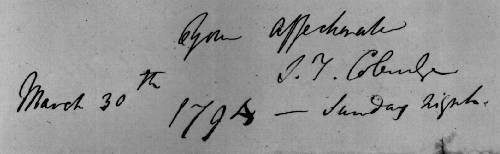 Your affectionate
S. T. Coleridge
March 30th
1794 — Sunday Night.